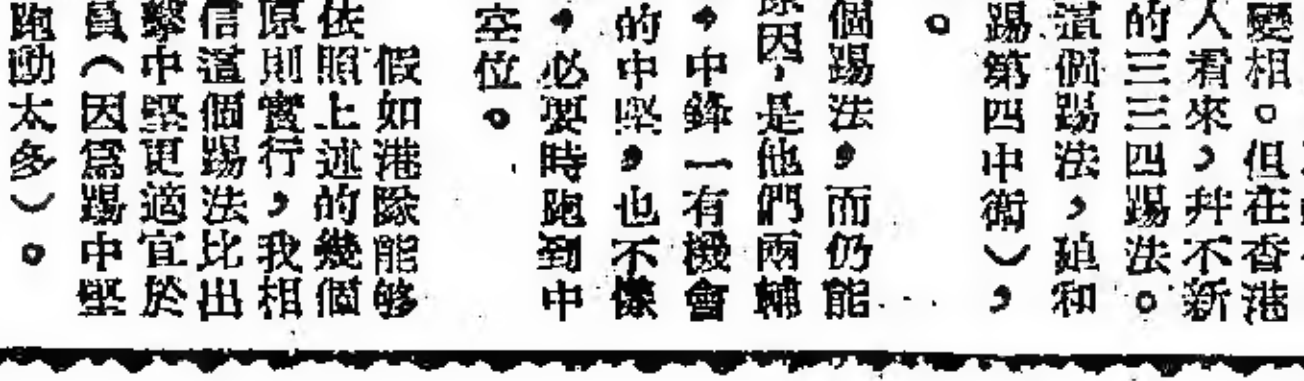 變相。但在香港
人看來，幷不新
的三三四踢法。
這個踢法，和
踢第四中衛），
。
個踢法，而仍能
原因，是他們兩輔
，中鋒一有機會
的中堅，也不像
，必要時跑到中
空位。
假如港隊能够
依照上述的幾個
原則實行，我相
信這個踢法比出
擊中堅更適宜於
員（因爲踢中堅
跑動太多）。